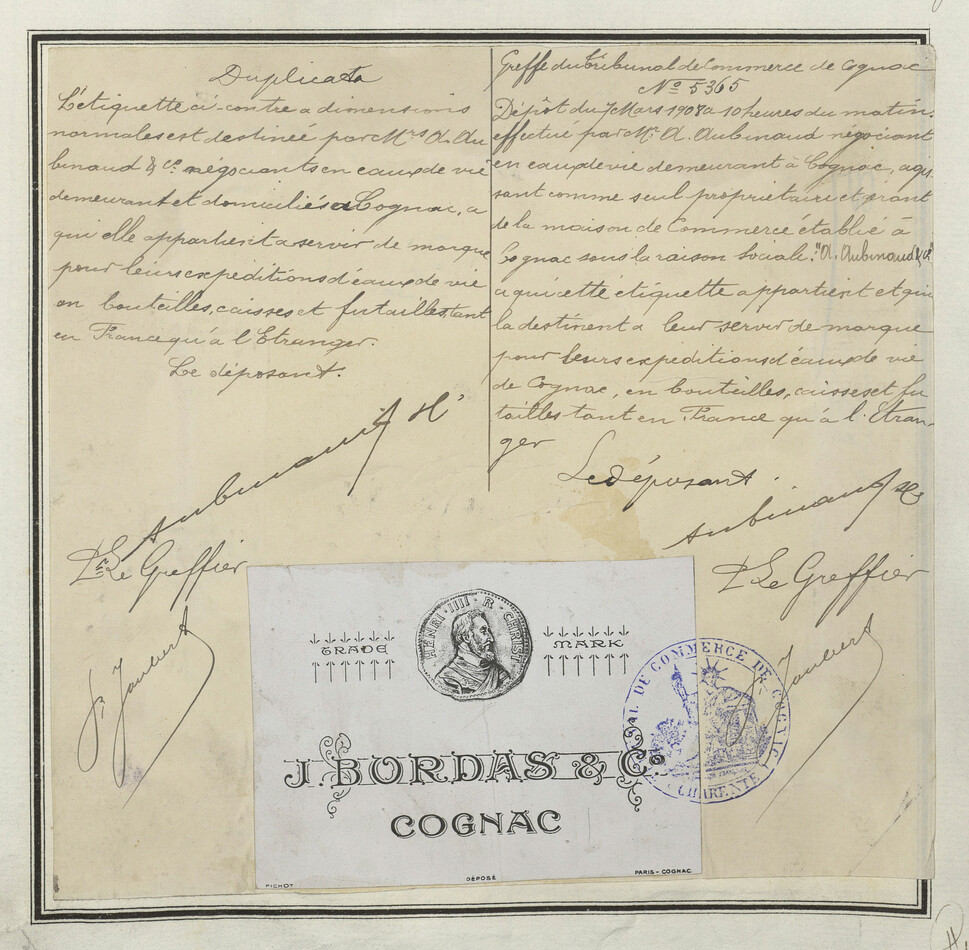 Duplicata
L'étiquette ci-contre a dimensions
normales est destinée par Mrs A. Au
binaud & Cie négociants en eaux de vie
demeurant et domiciliés à Cognac, a
qui elle appartient a servir de marque
pour leurs expéditions d'eaux de vie
en bouteilles, caisses et futailles, tant
en France qu'à l'Etranger.
Le déposant.
Aubinaud
Le Greffier
Jaubert
Greffe du Tribunal de Commerce de Cognac
No 5365
Dépôt du 7 Mars 1908 a 10 heures du matin.
effectué par Mr. A. Aubinaud négociant
en eaux de vie demeurant à Cognac, agis
sant comme seul propriétaire et gérant
de la maison de Commerce établie à
Cognac sous la raison sociale: "A. Aubinaud & Cie"
a qui cette étiquette appartient et qui
la destinent a leur servir de marque
pour leurs expéditions d'eaux de vie
de Cognac, en bouteilles, caisses et fu
tailles tant en France qu'à l'Etran-
ger
Le déposant.
Aubinaud
Le Greffier
Jaubert
HENRI · IIII · R · CHRIST
TRADE MARK
J. BORDAS & Co
COGNAC
PICHOT
DÉPOSÉ
PARIS - COGNAC
AL DE COMMERCE DE COGNAC
CHARENTE